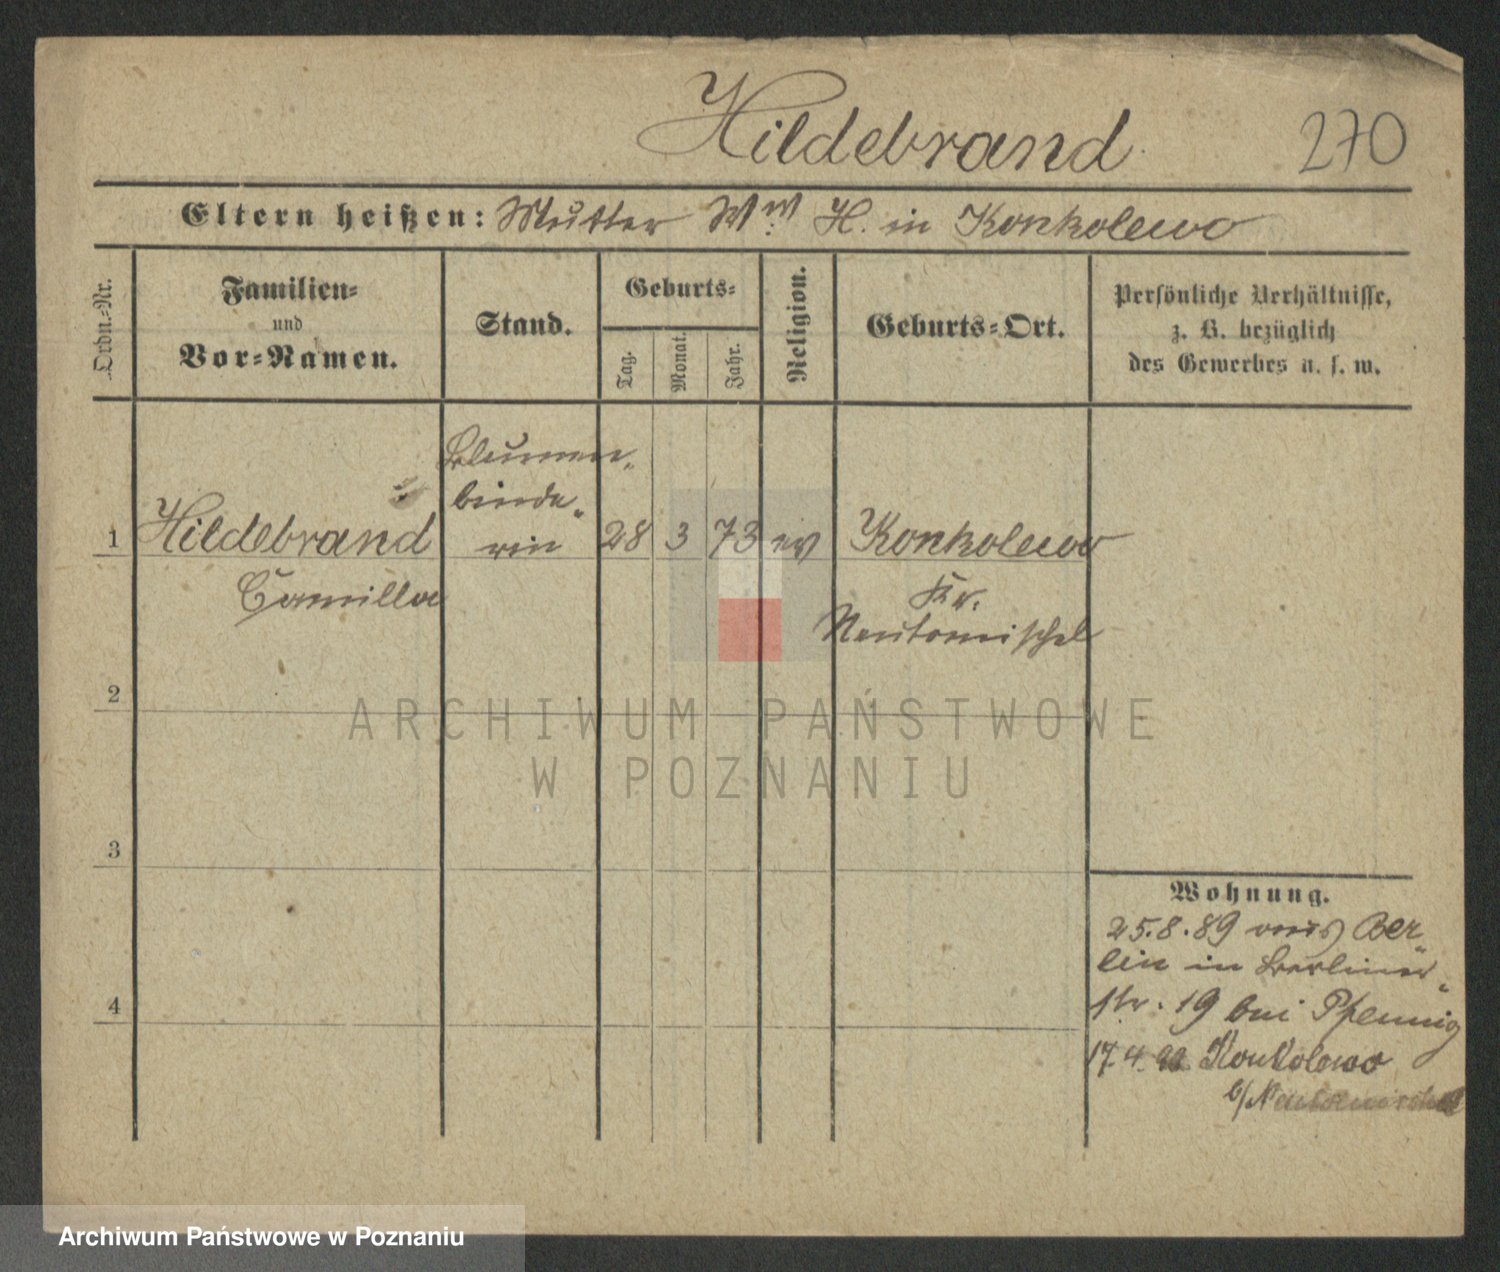 Hildebrand 270
Eltern heißen: Mutter Ww. H. in Konkolewo
Ordn.-Nr.
Familien-
und
Vor-Namen.
Stand.
Geburts-
Tag.
Monat.
Jahr.
Religion.
Geburts-Ort.
Persönliche Verhältnisse,
z. B. bezüglich
des Gewerbes u. s. w.
Blumen-
binde-
rin
1 Hildebrand 28 3 73 ev Konkolewo
Camilla
Kr.
Neutomischel
2
3
4
Wohnung.
25.8.89 aus Ber-
lin in Berliner-
str. 19 bei Pfennig
17.4. Konkolewo
b/Neutomischel
ARCHIWUM PAŃSTWOWE
W POZNANIU
Archiwum Państwowe w Poznaniu